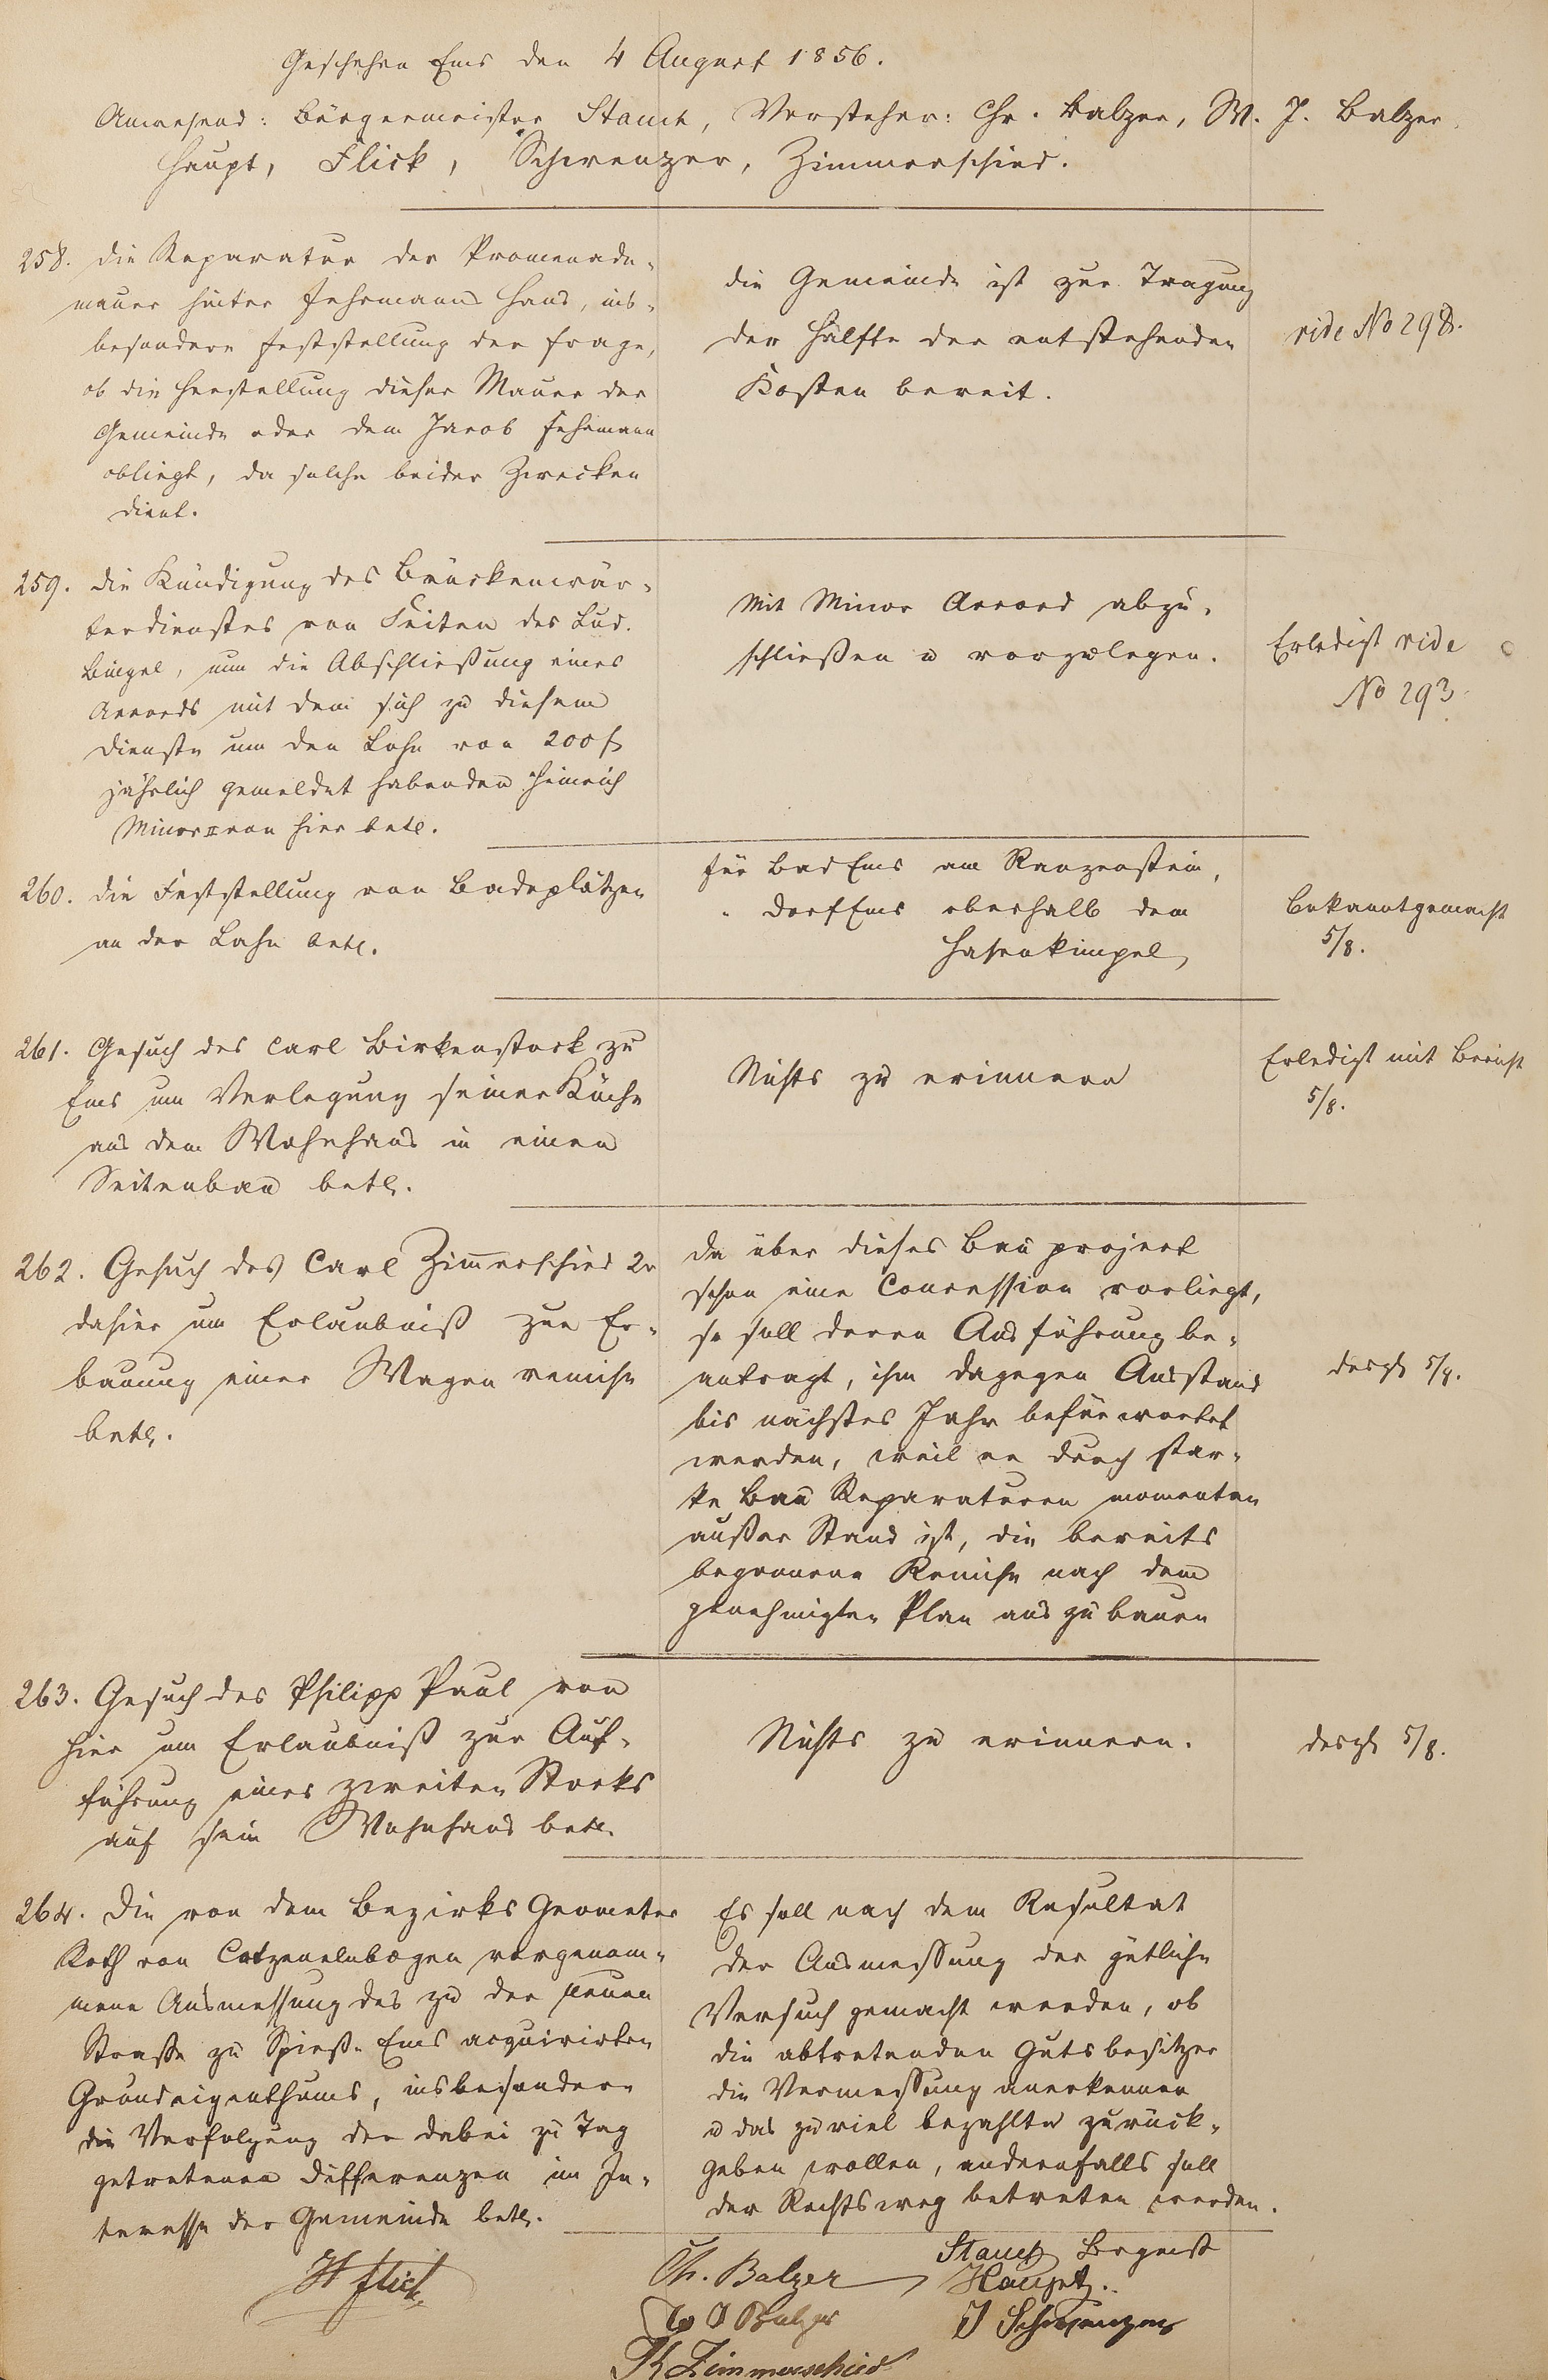 Geschehen Ems den 4 August 1856.
Anwesend: Bürgermeister Stauch, Vorsteher: Chr. Balzer, W. J. Balzer,
Haupt, Flick, Schwenzer, Zimmerschied.
258. die Reparatur der Promenade-
mauer hinter Fehrmanns Haus, ins-
besondere Feststellung der Frage,
ob die Herstellung dieser Mauer der
Gemeinde oder dem Jacob Fehrmann
obliegt, da solche beider Zwecken
dient.
die Gemeinde ist zur Tragung
der Hälfte der entstehenden
Kosten bereit.
vide No 298.
259. die Kündigung des Brückenwär-
terdienstes von Seiten des Lud.
Bingel, nun die Abschließung eines
Accords mit dem sich zu diesem
Dienste um den Lohn von 200 f
jährlich gemeldet habenden Heinrich
Minor II von hier betr.
Mit Minor Accord abzu-
schließen u vorzulegen.
Erledigt vide
No 293.
260. die Feststellung von Badeplätzen
an der Lahn betr.
für Bad Ems am Ranzenstein,
" Dorf Ems oberhalb dem
Hasenkimpel,
Bekanntgemacht
5/8.
261. Gesuch des Carl Birkenstock zu
Ems um Verlegung seiner Küche
aus dem Wohnhaus in einen
Seitenbau betr.
Nichts zu erinnern
Erledigt mit Bericht
5/8.
262. Gesuch des Carl Zimmerschied 2r
dahier um Erlaubniß zur Er-
bauung einer Wagen remise
betr.
da über dieses Bau project
schon eine Concession vorliegt,
so soll deren Ausführung be-
antragt, ihm dagegen Ausstand
bis nächstes Jahr befürwortet
werden, weil er durch star-
ke Bau Reparaturen momentan
außer Stand ist, die bereits
begonnene Remise nach dem
genehmigten Plan aus zu bauen
desgl 5/8.
263. Gesuch des Philipp Paul von
hier um Erlaubniß zur Auf-
führung eines zweiten Stocks
auf sein Wohnhaus betr.
Nichts zu erinnern.
desgl 5/8.
264. Die von dem Bezirks Geometer
Roth von Catzenelnbogen vorgenom-
mene Ausmessung des zu der neuen
Straße zu Spieß-Ems acquirirten
Grundeigenthums, insbesondere
die Verfolgung der dabei zu Tag
getretenen Differenzen im In-
teresse der Gemeinde betr.
Es soll nach dem Resultat
der Ausmessung der gütliche
Versuch gemacht werden, ob
die abtretenden Gutsbesitzer
die Vermessung anerkennen
u das zuviel bezahlte zurück-
geben wollen, andernfalls soll
der Rechtsweg betreten werden.
H Flick
Ch. Balzer
Stauch Brgmst
Haupt.
W J Balzer
J Schwenzer
Zimmerschied